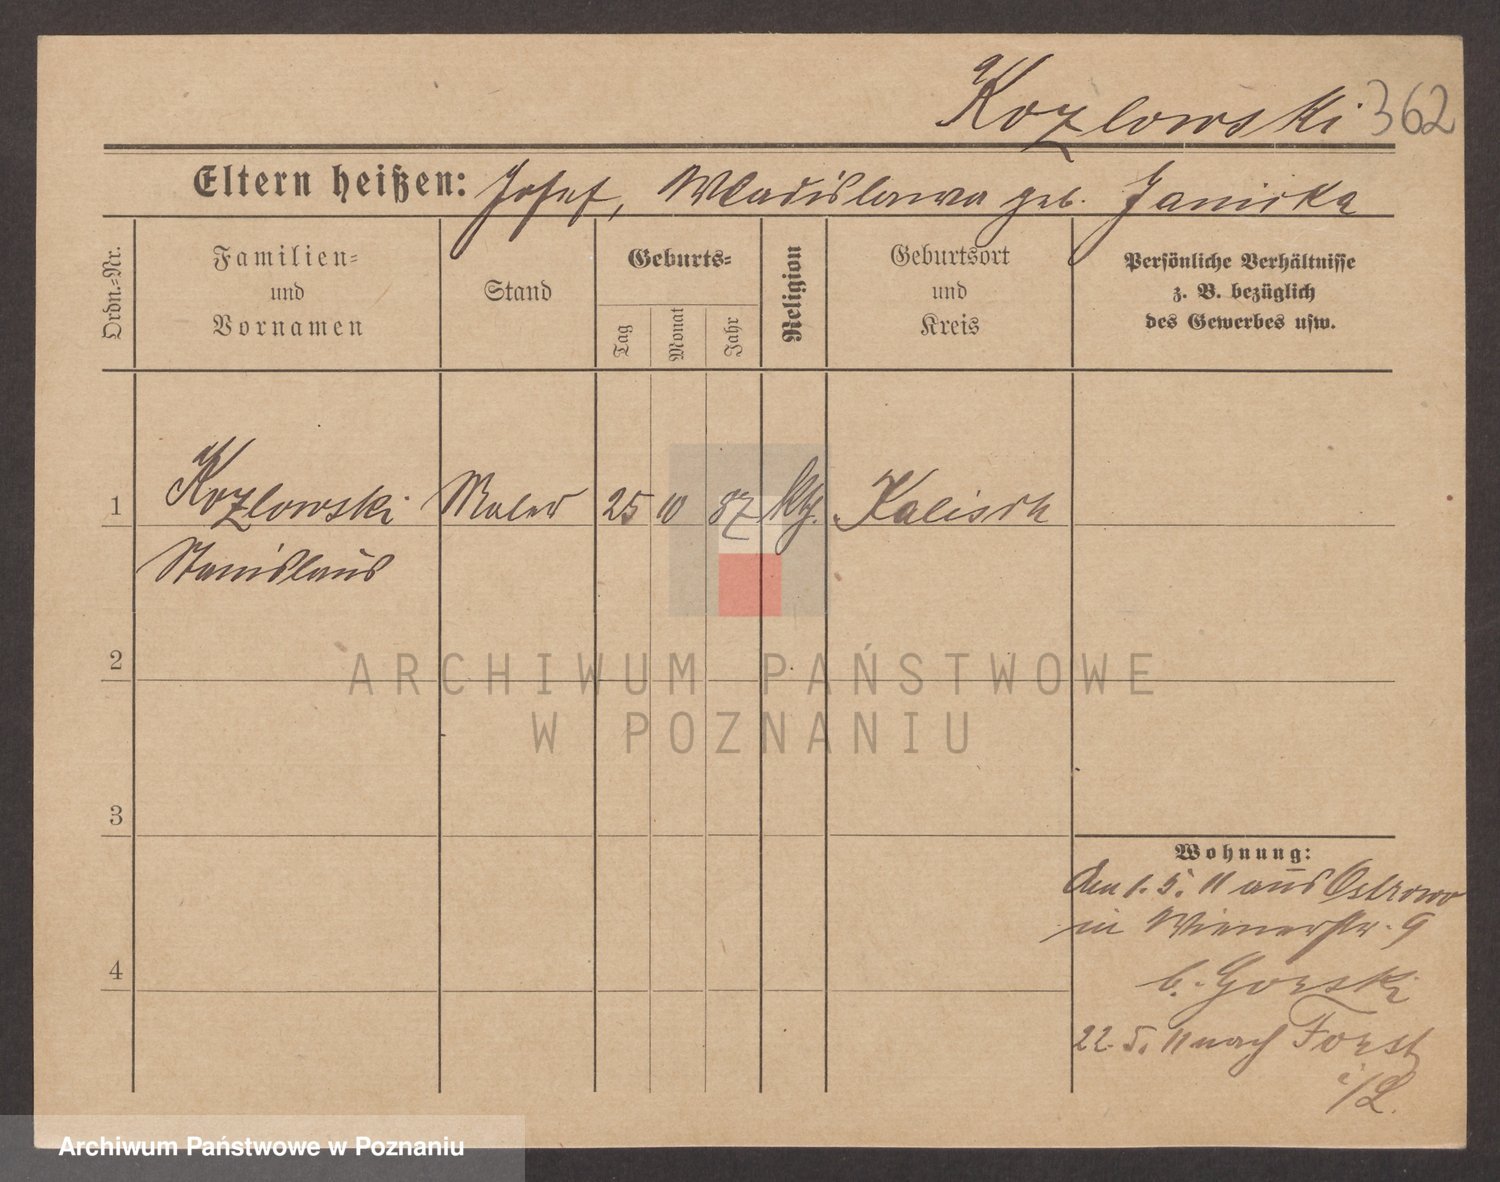 Kozlowski 362
Eltern heißen: Josef, Wladislawa geb. Janicka
Ordn.-Nr.
Familien- und Vornamen
Stand
Geburts-
Tag
Monat
Jahr
Religion
Geburtsort und Kreis
Persönliche Verhältnisse
z. B. bezüglich
des Gewerbes usw.
1 Kozlowski Maler 25 10 87 kth. Kalisch
Stanislaus
2
ARCHIWUM PAŃSTWOWE
W POZNANIU
3
Wohnung:
den 1. 5. 11 aus Ostrowo
in Wienerstr. 9
b. Gorski
4
22. 5. 11 nach Forst
i/L.
Archiwum Państwowe w Poznaniu